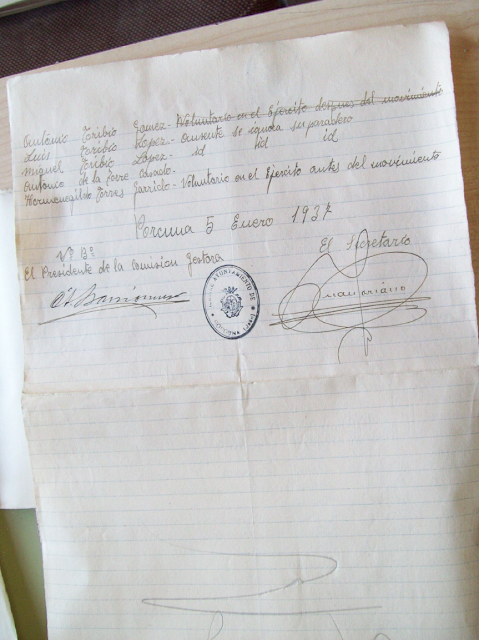 Antonio Toribio Gamez - Voluntario en el Ejercito despues del movimiento
Luis Toribio Lopez - Ausente se ignora su paradero
Miguel Toribio López - id id id
Antonio de la Torre Casado -
Hermenegildo Torres Garrido - Voluntario en el Ejercito antes del movimiento
Porcuna 5 Enero 1937
Vº Bº
El Secretario
El Presidente de la Comision Gestora
AYUNTAMIENTO DE